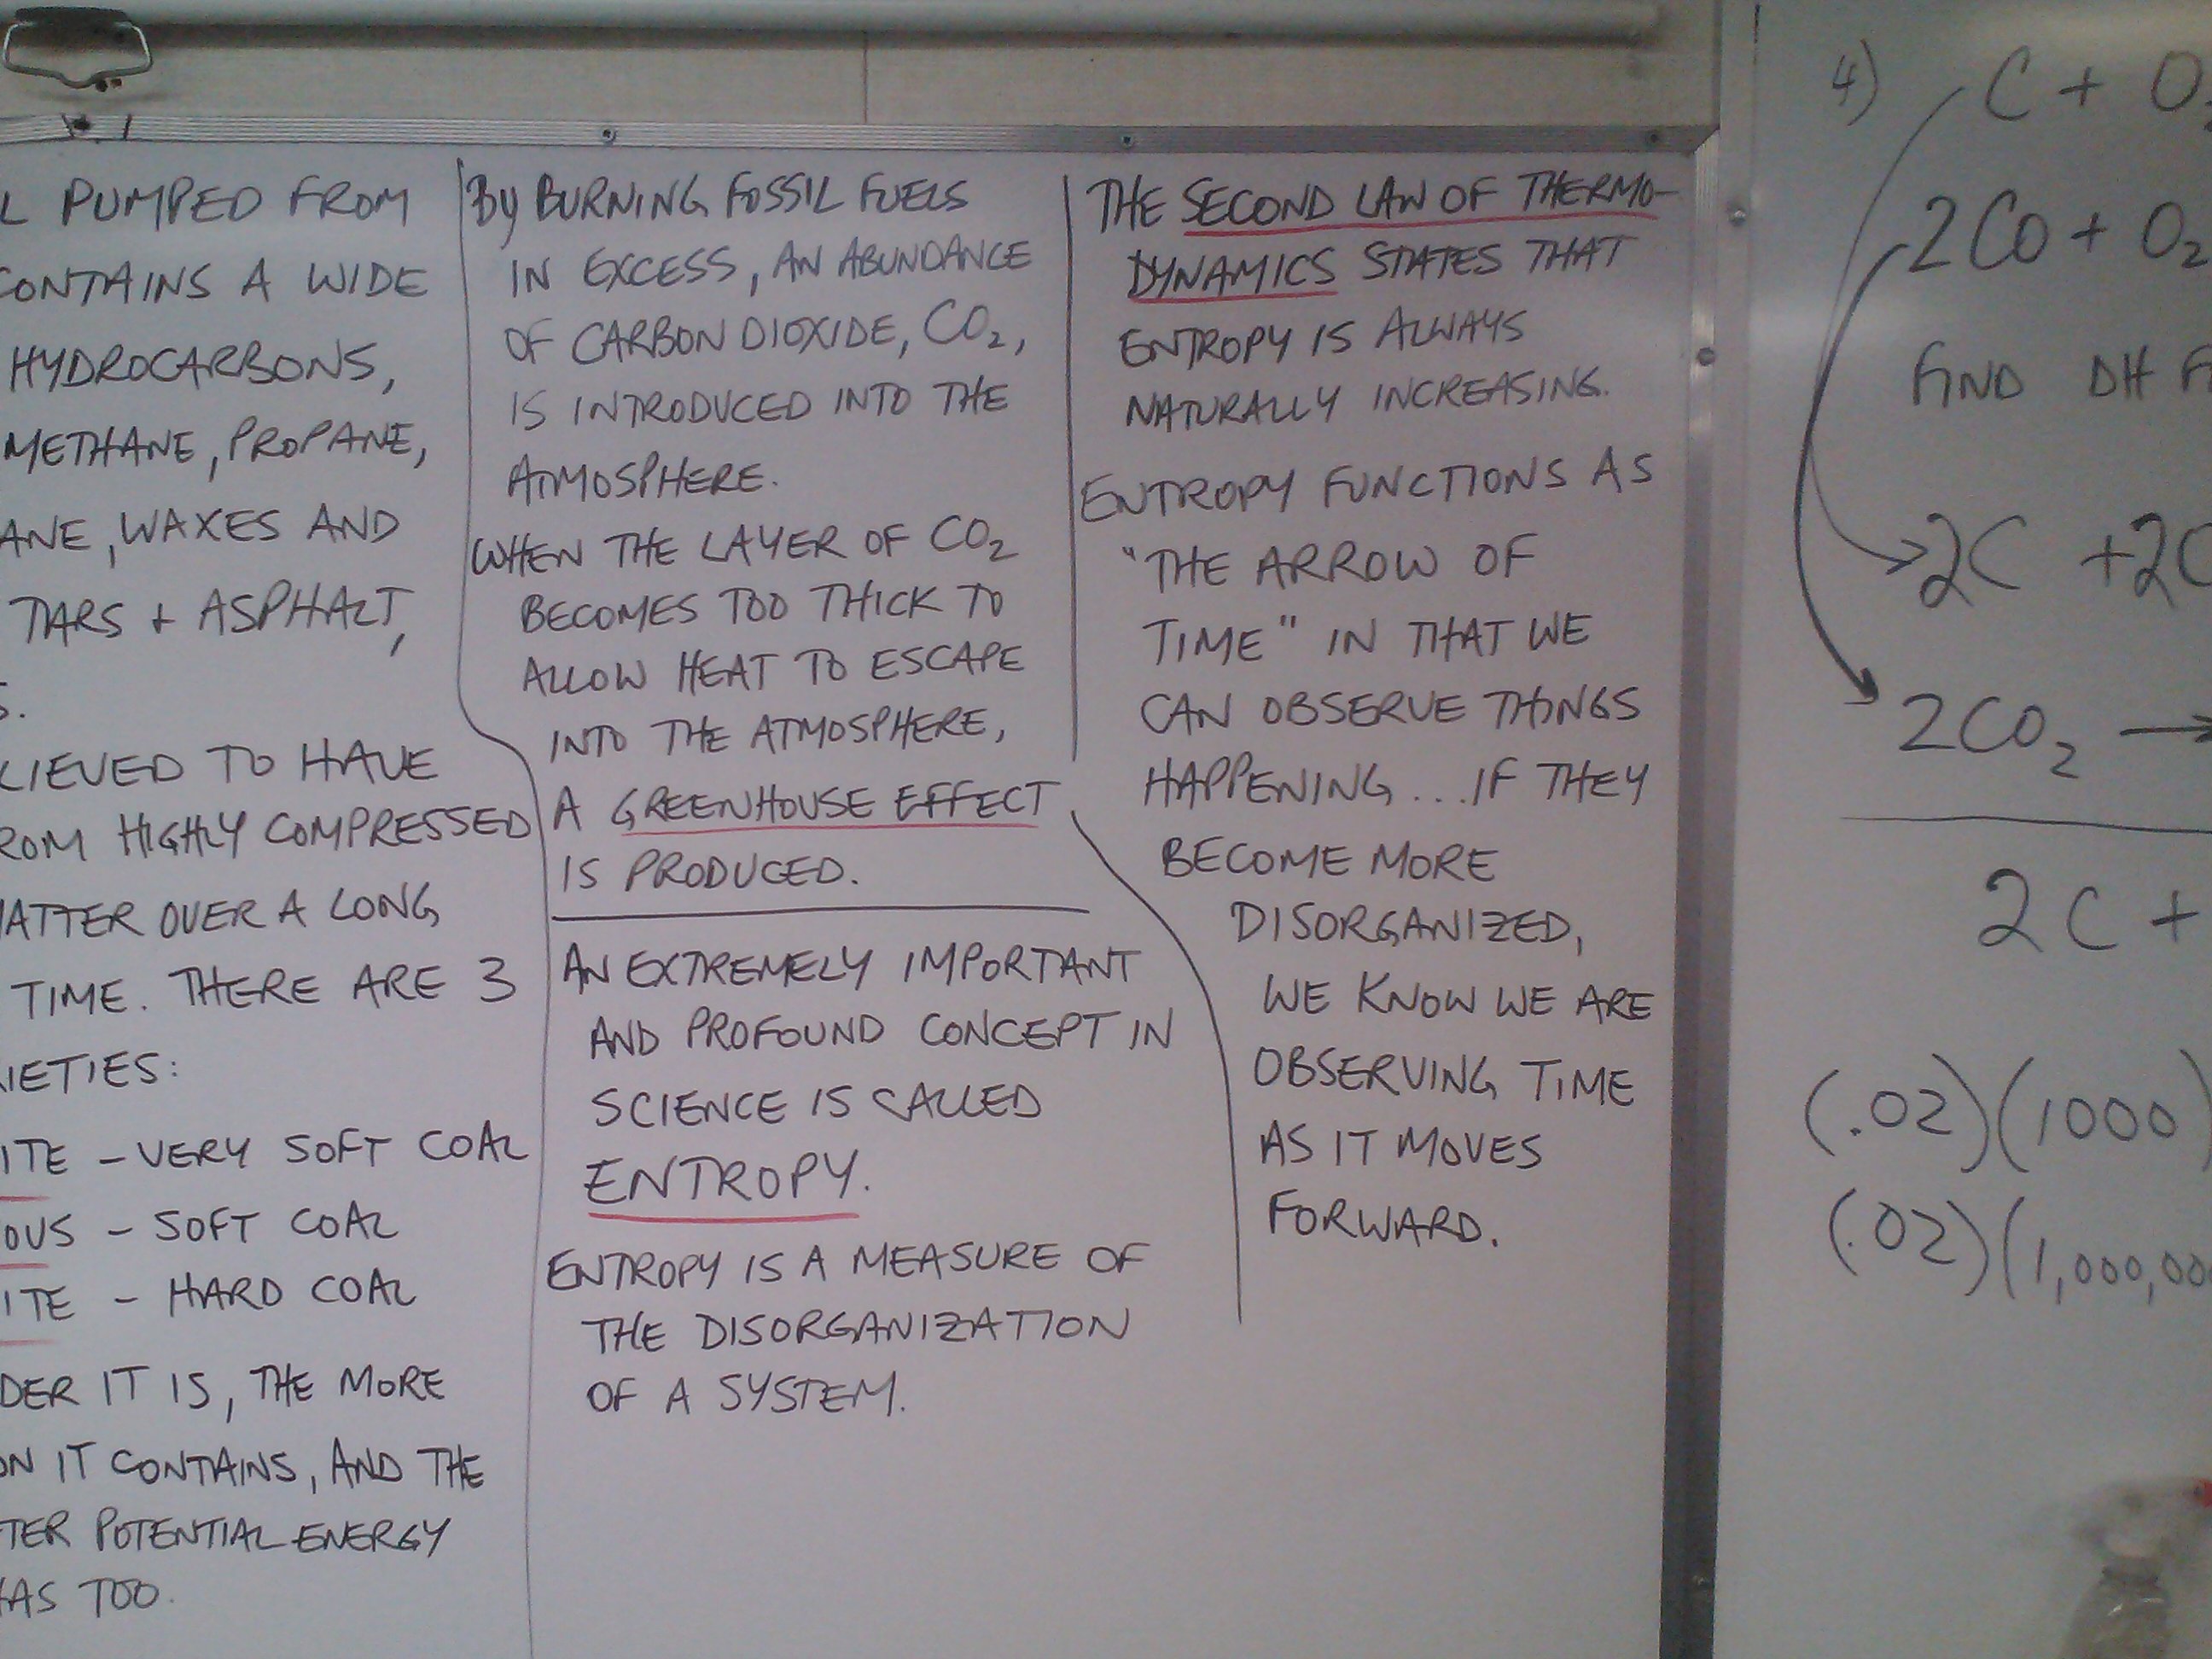 L PUMPED FROM
CONTAINS A WIDE
HYDROCARBONS,
METHANE, PROPANE,
ANE, WAXES AND
TARS + ASPHALT,
S.
LIEVED TO HAVE
ROM HIGHLY COMPRESSED
MATTER OVER A LONG
TIME. THERE ARE 3
RIETIES:
ITE - VERY SOFT COAL
OUS - SOFT COAL
ITE - HARD COAL
DER IT IS, THE MORE
ON IT CONTAINS, AND THE
TER POTENTIAL ENERGY
HAS TOO.
BY BURNING FOSSIL FUELS
IN EXCESS, AN ABUNDANCE
OF CARBON DIOXIDE, CO2,
IS INTRODUCED INTO THE
ATMOSPHERE.
WHEN THE LAYER OF CO2
BECOMES TOO THICK TO
ALLOW HEAT TO ESCAPE
INTO THE ATMOSPHERE,
A GREENHOUSE EFFECT
IS PRODUCED.
AN EXTREMELY IMPORTANT
AND PROFOUND CONCEPT IN
SCIENCE IS CALLED
ENTROPY.
ENTROPY IS A MEASURE OF
THE DISORGANIZATION
OF A SYSTEM.
THE SECOND LAW OF THERMO-
DYNAMICS STATES THAT
ENTROPY IS ALWAYS
NATURALLY INCREASING.
ENTROPY FUNCTIONS AS
"THE ARROW OF
TIME" IN THAT WE
CAN OBSERVE THINGS
HAPPENING... IF THEY
BECOME MORE
DISORGANIZED,
WE KNOW WE ARE
OBSERVING TIME
AS IT MOVES
FORWARD.
4) C + O2
2CO + O2
FIND DH F
2C + 2O
2CO2 →
2C +
(.02)(1000)
(.02)(1,000,00